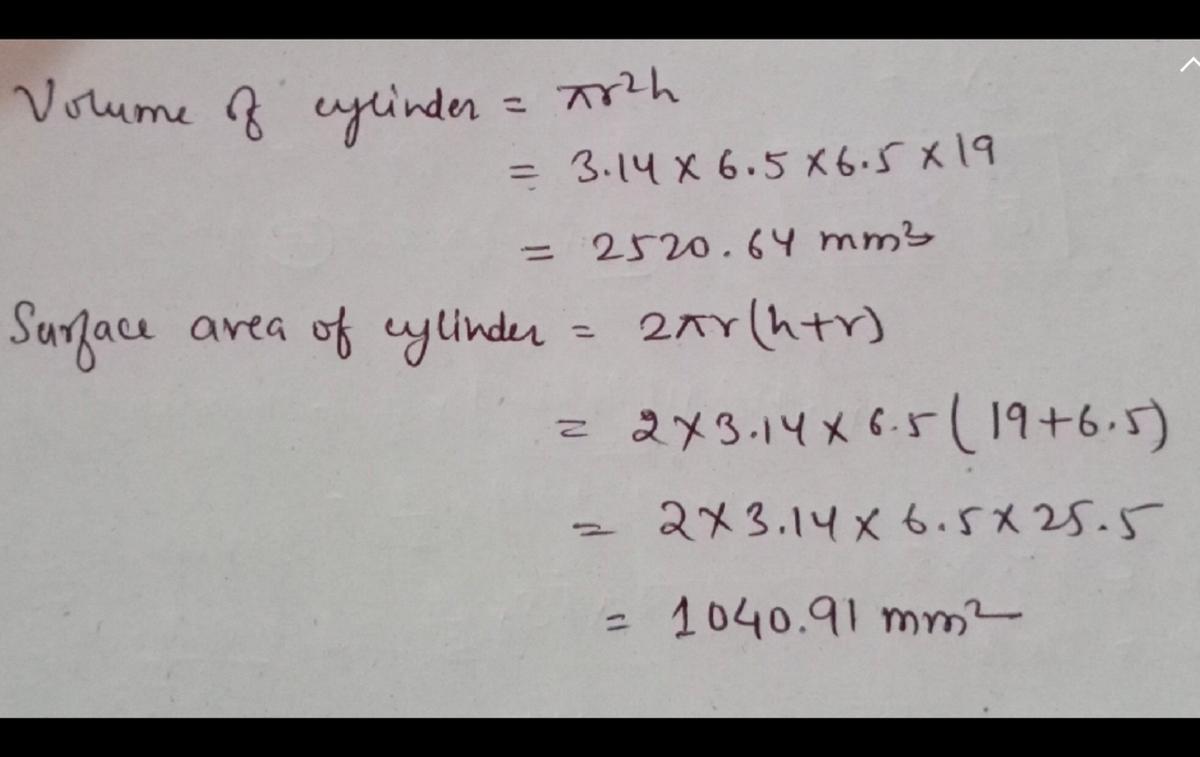 Volume of cylinder = πr²h
= 3.14 × 6.5 × 6.5 × 19
= 2520.64 mm³
Surface area of cylinder = 2πr(h+r)
= 2×3.14 × 6.5 ( 19+6.5)
= 2×3.14 × 6.5 × 25.5
= 1040.91 mm²